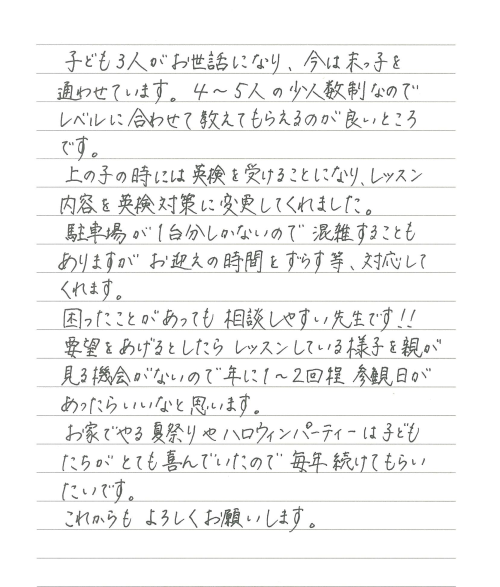 子ども3人がお世話になり、今は末っ子を
通わせています。4〜5人の少人数制なので
レベルに合わせて教えてもらえるのが良いところ
です。
上の子の時には英検を受けることになり、レッスン
内容を英検対策に変更してくれました。
駐車場が1台分しかないので混雑することも
ありますがお迎えの時間をずらす等、対応して
くれます。
困ったことがあっても相談しやすい先生です!!
要望をあげるとしたらレッスンしている様子を親が
見る機会がないので年に1〜2回程参観日が
あったらいいなと思います。
お家でやる夏祭りやハロウィンパーティーは子ども
たちがとても喜んでいたので毎年続けてもらい
たいです。
これからもよろしくお願いします。